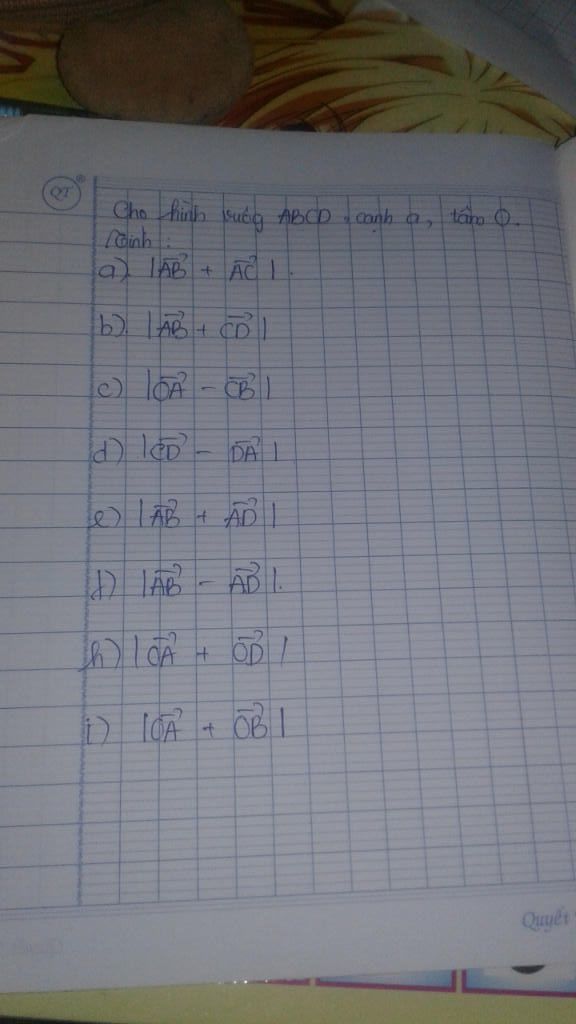 QT
Cho hình vuông ABCD, cạnh a, tâm O.
Tính :
a) |AB→ + AC→|.
b). |AB→ + CD→|
c) |OA→ - CB→|
d) |CD→ - DA→|
e) |AB→ + AD→|
f) |AB→ - AD→|.
h) |OA→ + OD→|
i) |OA→ + OB→|
Quyết